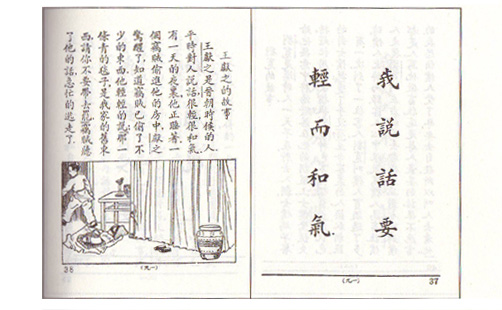 我說話要
輕而和氣
(九一)
37
王獻之的故事
王獻之是晉朝時候的人,
平時對人說話,很輕很和氣.
有一天的夜裏,他正睡着,一
個竊賊偷進他的房中,獻之
驚醒了,知道竊賊已偷了不
少的東西,他輕輕的說,那一
條青的毡子,是我家的舊東
西,請你不要帶去罷,竊賊聽
了他的話,急忙的逃走了.
(九一)
38